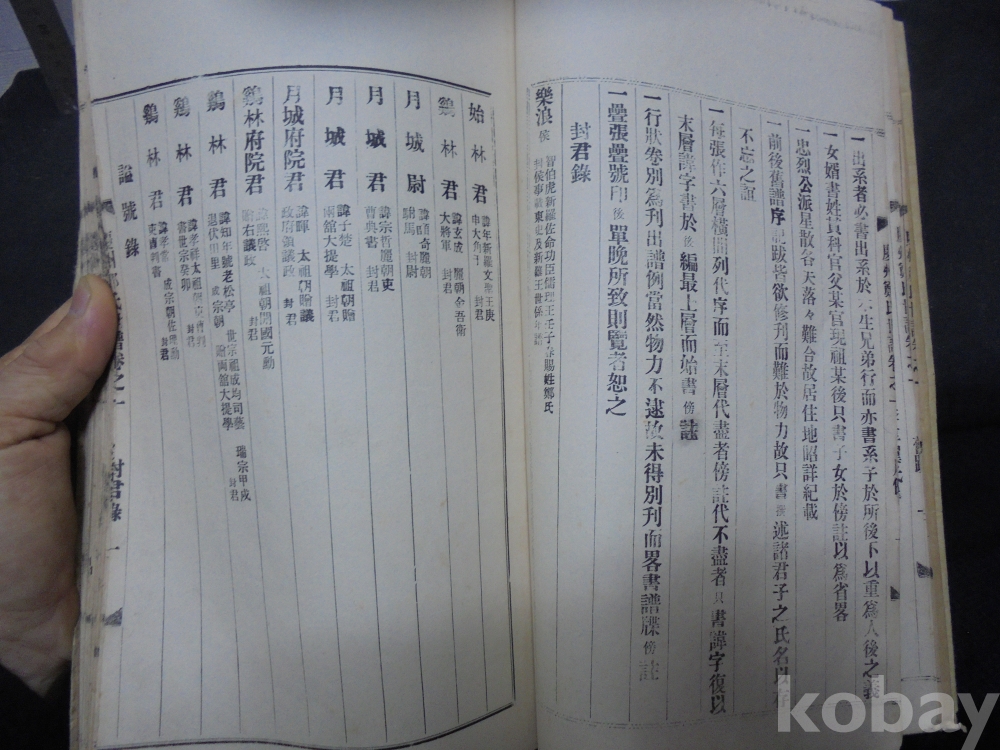 一出系者必書出系於本生兄弟行而亦書系子於所後下以重爲人後之義
一女婿書姓貫科官父某官現祖某後只書子女於傍註以爲省畧
一忠烈公派星散各天落々難合故居住地昭詳紀載
一前後舊譜序跋皆欲修刊而難於物力故只書撰述諸君子之氏名以存
不忘之誼
一每張作六層橫間列代序而至末層代盡者傍註代不盡者只書諱字復以
末層諱字書於後編最上層而始書傍註
一行狀卷別爲刊出譜例當然物力不逮故未得別刊而畧書譜牒傍註
一疊張疊號印後單晚所致則覽者恕之
封君錄
樂浪侯 智伯虎新羅佐命功臣儒理王壬子春賜姓鄭氏
始林君 諱年新羅文聖王庚申大角干
鷄林君 諱玄成 麗朝金吾衛大將軍 封君
月城尉 麗朝駙馬 封尉
月城君 諱宗哲麗朝吏曹典書 封君
月城君 諱子楚 太祖朝贈兩館大提學 封君
月城府院君 諱暉 太祖朝贈議政府領議政 封君
鷄林府院君 諱熙啓 太祖朝開國元勳 封君
鷄林君 諱知年號老松亭 世宗祖成均司藝 端宗甲戌退伏田里 成宗朝贈兩館大提學 封君
鷄林君 諱孝祥太祖朝
鷄林君 諱孝常 成宗朝佐理勳 封君
諡號錄
卷之一
封君錄 一
kobay